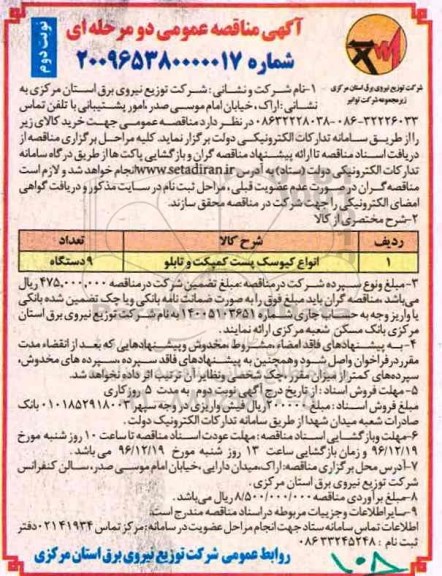 آگهی مناقصه عمومی دو مرحله ای
شماره ۲۰۰۹۶۵۳۸۰۰۰۰۰۱۷
نوبت دوم
شرکت توزیع نیروی برق استان مرکزی
زیرمجموعه شرکت توانیر
۱-نام شرکت و نشانی: شرکت توزیع نیروی برق استان مرکزی به
نشانی: اراک، خیابان امام موسی صدر، امور پشتیبانی با تلفن تماس
۳۲۲۲۶۰۳۳-۰۸۶-۰۸۶۳۲۲۲۸۰۳۸ در نظر دارد مناقصه عمومی جهت خرید کالای زیر
را از طریق سامانه تدارکات الکترونیکی دولت برگزار نماید. کلیه مراحل برگزاری مناقصه از
دریافت اسناد مناقصه تا ارائه پیشنهاد مناقصه گران و بازگشایی پاکت ها از طریق درگاه سامانه
تدارکات الکترونیکی دولت (ستاد) به آدرس www.setadiran.ir انجام خواهد شد و لازم است
مناقصه گران در صورت عدم عضویت قبلی، مراحل ثبت نام در سایت مذکور و دریافت گواهی
امضای الکترونیکی را جهت شرکت در مناقصه محقق سازند.
۲-شرح مختصری از کالا
ردیف شرح کالا تعداد
۱ انواع کیوسک پست کمپکت و تابلو ۹ دستگاه
۳-مبلغ و نوع سپرده شرکت در مناقصه: مبلغ تضمین شرکت در مناقصه ۴۷۵.۰۰۰.۰۰۰ ریال
می باشد. مناقصه گران باید مبلغ فوق را به صورت ضمانت نامه بانکی و یا چک تضمین شده بانکی
یا واریز وجه به حساب جاری شماره ۱۴۰۰۵۱۰۳۶۵۱ به نام شرکت توزیع نیروی برق استان
مرکزی بانک مسکن شعبه مرکزی ارائه نمایند.
۴-به پیشنهادهای فاقد امضاء، مشروط، مخدوش و پیشنهادهایی که بعد از انقضاء مدت
مقرر در فراخوان واصل شود و همچنین به پیشنهادهای فاقد سپرده، سپرده های مخدوش،
سپرده های کمتر از میزان مقرر، چک شخصی و نظایر آن ترتیب اثر داده نخواهد شد.
۵-مهلت فروش اسناد: از تاریخ درج آگهی نوبت دوم به مدت ۵ روز کاری
مبلغ فروش اسناد: مبلغ ۲۰۰.۰۰۰ ریال فیش واریزی در وجه سپهر ۰۱۰۱۸۵۲۹۱۸۰۰۳ بانک
صادرات شعبه میدان شهدا از طریق سامانه تدارکات الکترونیک دولت.
۶-مهلت و بازگشایی اسناد مناقصه: مهلت عودت اسناد مناقصه تا ساعت ۱۰ روز شنبه مورخ
۹۶/۱۲/۱۹ و زمان بازگشایی ساعت ۱۳ روز شنبه مورخ ۹۶/۱۲/۱۹ می باشد.
۷-آدرس محل برگزاری مناقصه: اراک، میدان دارایی، خیابان امام موسی صدر، سالن کنفرانس
شرکت توزیع نیروی برق استان مرکزی.
۸-مبلغ برآوردی مناقصه ۸/۵۰۰/۰۰۰/۰۰۰ ریال می باشد.
۹-سایر اطلاعات و جزییات مربوطه در اسناد مناقصه مندرج است.
اطلاعات تماس سامانه ستاد جهت انجام مراحل عضویت در سامانه: مرکز تماس ۰۲۱۴۱۹۳۴ دفتر
ثبت نام: ۰۸۶۳۳۲۴۵۲۴۸
روابط عمومی شرکت توزیع نیروی برق استان مرکزی